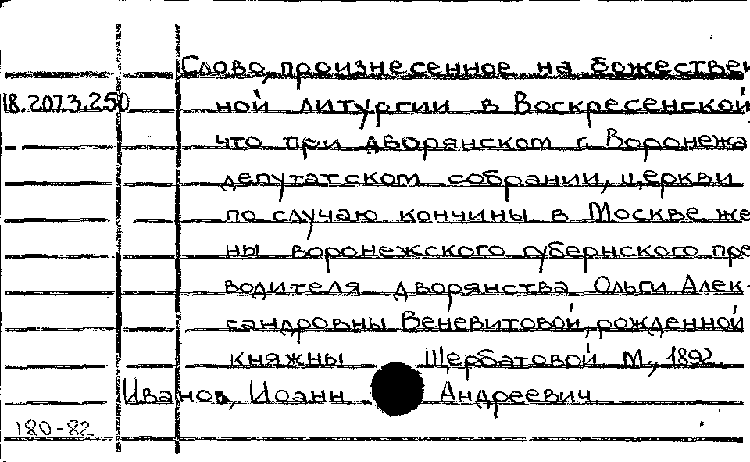 Слово, произнесенное на божествен
18.2073.250 ной литургии в Воскресенской,
что при дворянском г. Воронежа
депутатском собрании, церкви
по случаю кончины в Москве же
ны воронежского губернского пре
водителя дворянства Ольги Алек-
сандровны Веневитовой, рожденной
княжны Щербатовой М., 1892.
Иванов, Иоанн Андреевич
180-82